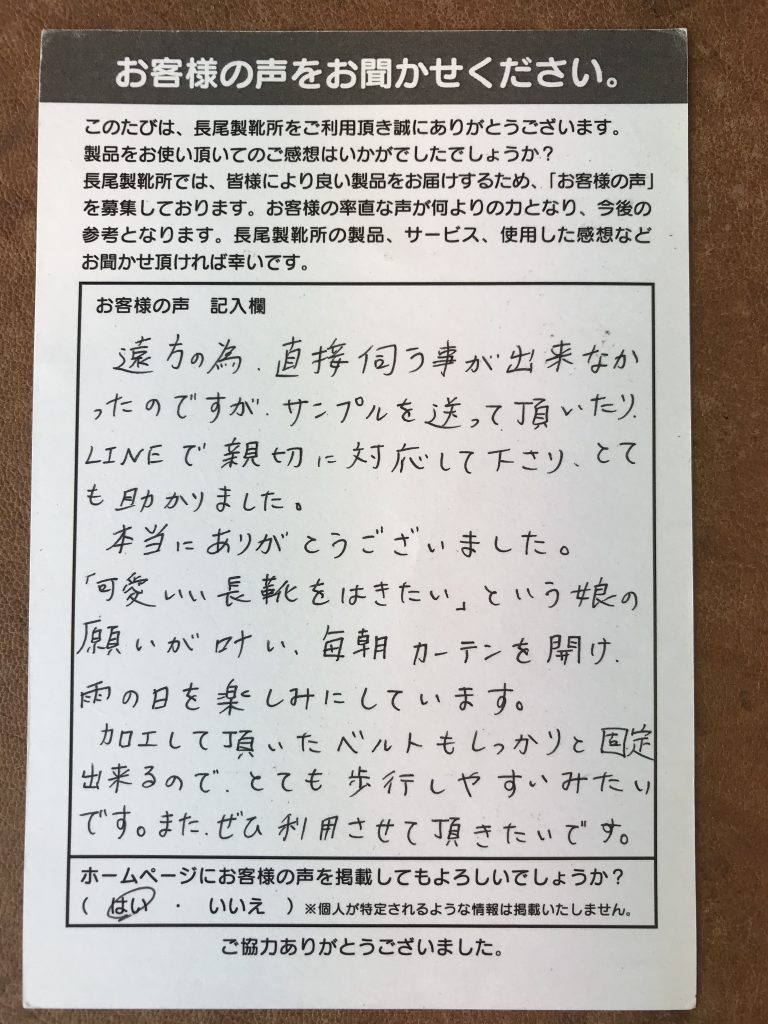 お客様の声をお聞かせください。
このたびは、長尾製靴所をご利用頂き誠にありがとうございます。
製品をお使い頂いてのご感想はいかがでしたでしょうか？
長尾製靴所では、皆様により良い製品をお届けするため、「お客様の声」
を募集しております。お客様の率直な声が何よりの力となり、今後の
参考となります。長尾製靴所の製品、サービス、使用した感想など
お聞かせ頂ければ幸いです。
お客様の声　記入欄
遠方の為、直接伺う事が出来なか
ったのですが、サンプルを送って頂いたり、
LINEで親切に対応して下さり、とて
も助かりました。
本当にありがとうございました。
「可愛いい長靴をはきたい」という娘の
願いが叶い、毎朝カーテンを開け、
雨の日を楽しみにしています。
加工して頂いたベルトもしっかりと固定
出来るので、とても歩行しやすいみたい
です。また、ぜひ利用させて頂きたいです。
ホームページにお客様の声を掲載してもよろしいでしょうか？
（　はい　・　いいえ　）※個人が特定されるような情報は掲載いたしません。
ご協力ありがとうございました。